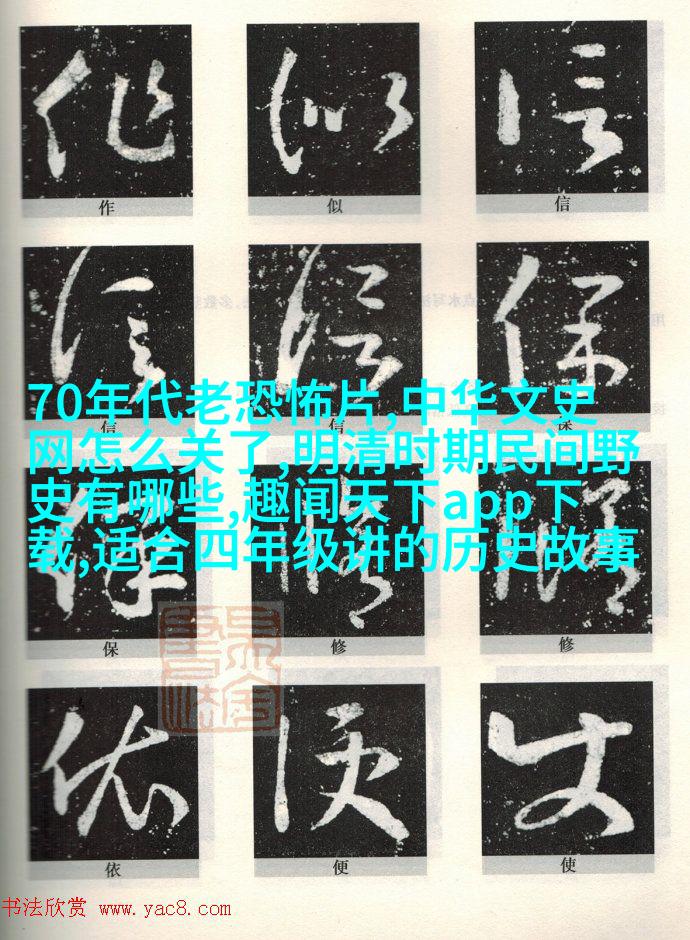 作 似 信
信 信 保
70年代老恐怖片,中华文史
网怎么关了,明清时期民间野
史有哪些,趣闻天下app下
载,适合四年级讲的历史故事
保 修 修
依 便 使
书法欣赏 www.yac8.com